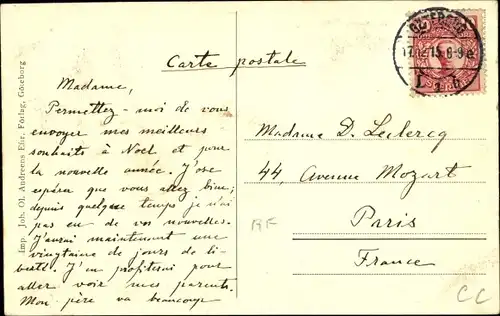 Carte postale
Madame,
Permettez-moi de vous
envoyer mes meilleurs
souhaits à Noël et pour
la nouvelle année. J'ose
espérer que vous allez bien;
depuis quelque temps je n'ai
pas eu de vos nouvelles.
J'aurai maintenant une
vingtaine de jours de li-
berté. J'en profiterai pour
aller voir mes parents.
Mon père va beaucoup
Imp. Joh. Ol. Andreens Eftr. Förlag, Göteborg
GÖTEBORG
17.12.15. 6-9
Madame D. Leclercq
44, Avenue Mozart
Paris
France
RF
CC